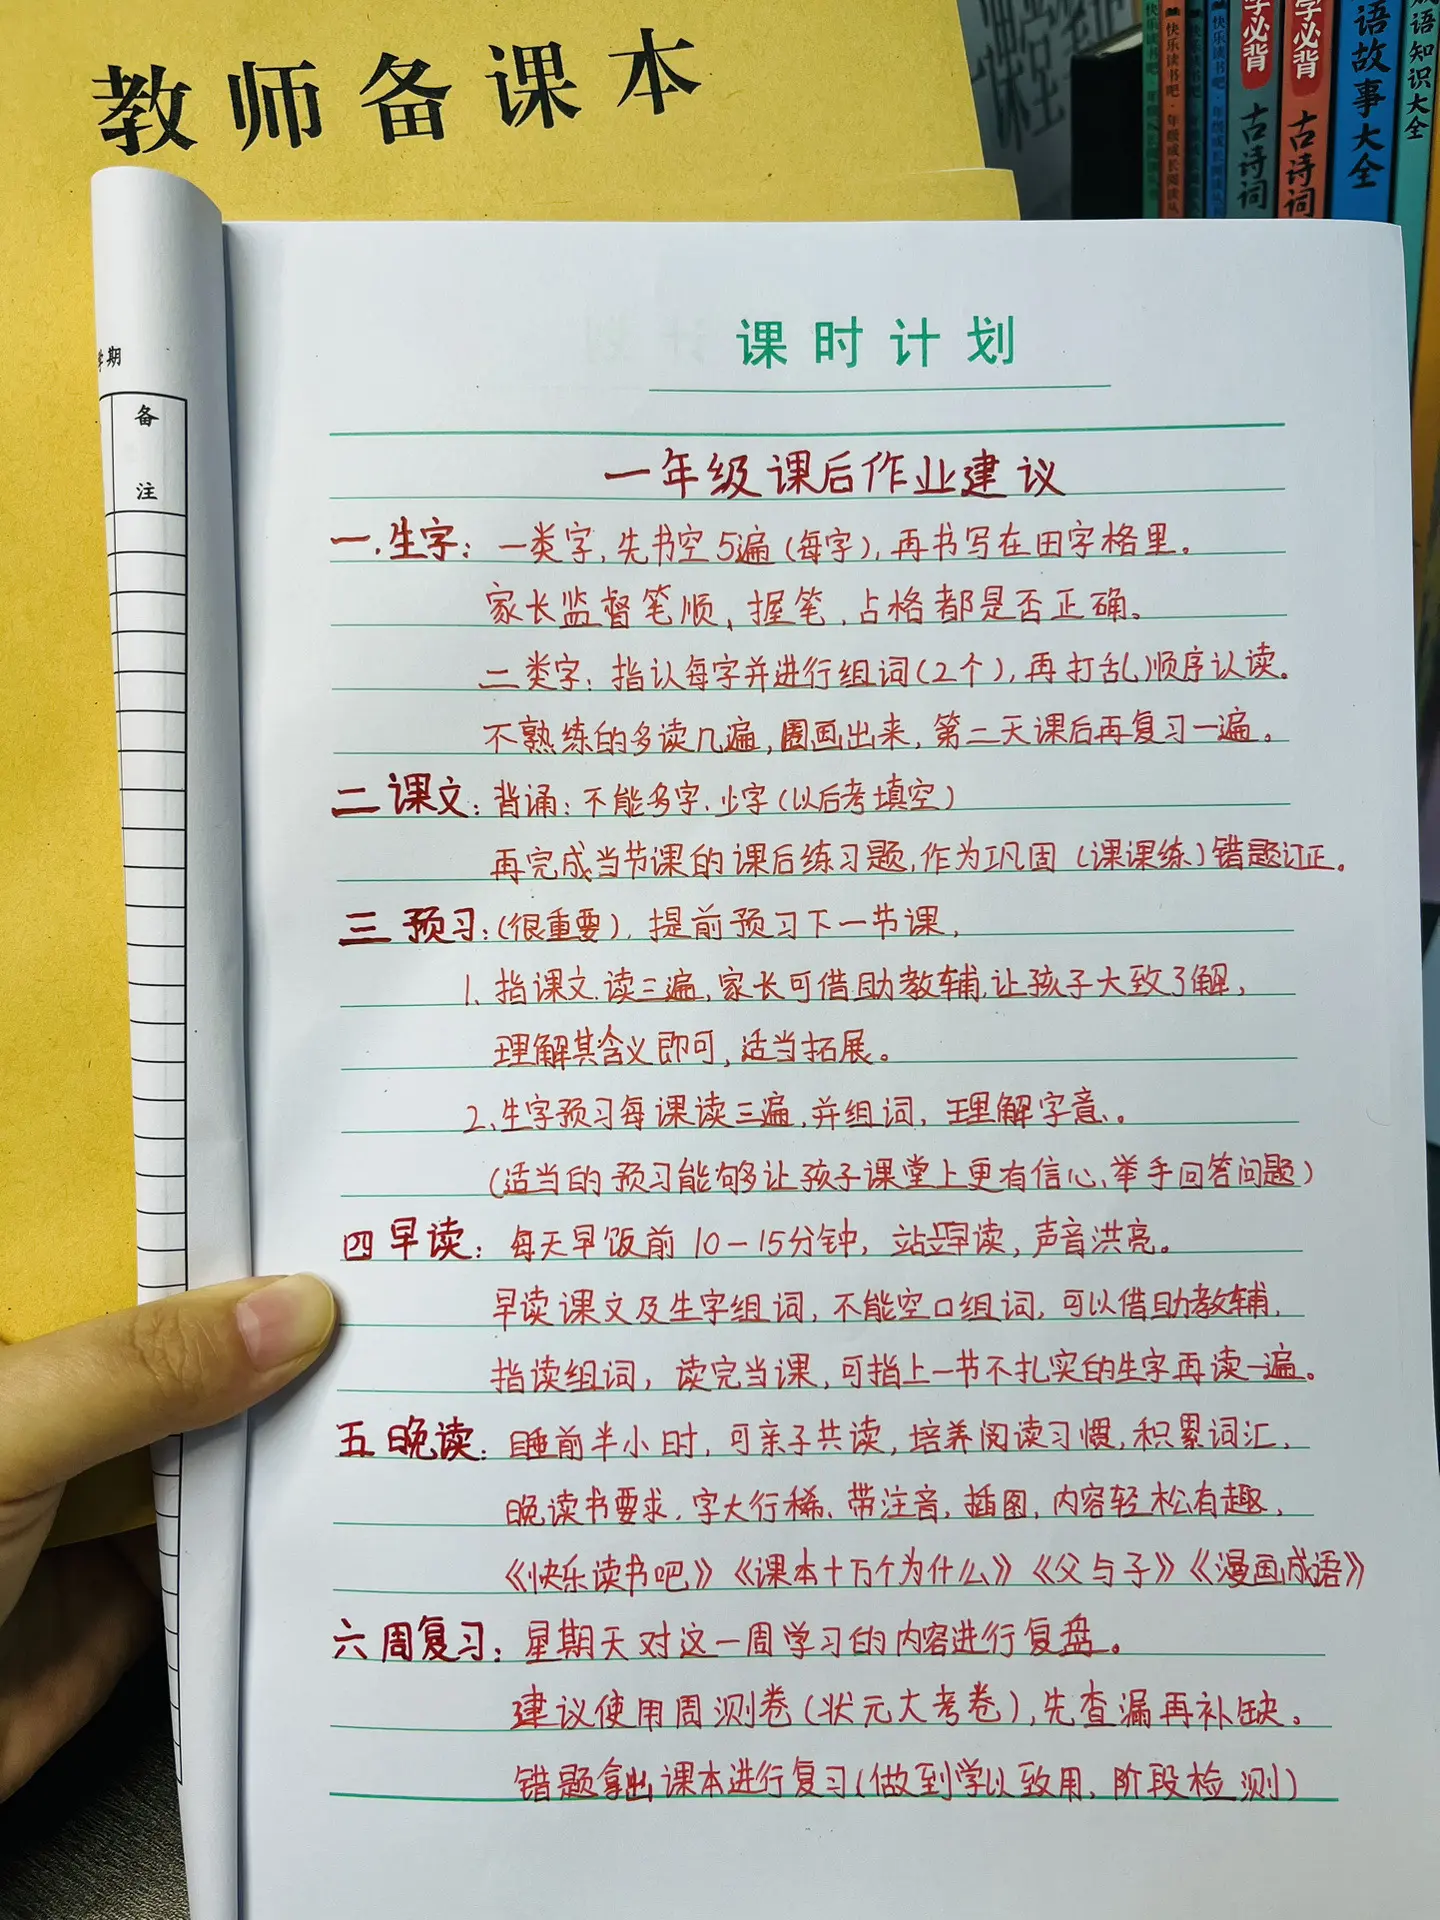 教师备课本
快乐读书吧
快乐读书吧·年级成长阅读丛
学必背 古诗词
学必背 古诗词
语故事大全
成语知识大全
学期
备注
课时计划
一年级课后作业建议
一.生字:一类字,先书空5遍(每字),再书写在田字格里。
家长监督笔顺、握笔、占格都是否正确。
二类字:指认每字并进行组词(2个),再打乱顺序认读。
不熟练的多读几遍,圈画出来,第二天课后再复习一遍。
二 课文:背诵:不能多字、少字(以后考填空)
再完成当节课的课后练习题,作为巩固(课课练)错题订正。
三 预习:(很重要),提前预习下一节课,
1、指课文读三遍,家长可借助教辅,让孩子大致了解,
理解其含义即可,适当拓展。
2、生字预习每课读三遍,并组词,理解字意、。
(适当的预习能够让孩子课堂上更有信心、举手回答问题)
四 早读:每天早饭前10-15分钟,站立早读,声音洪亮。
早读课文及生字组词,不能空口组词,可以借助教辅,
指读组词,读完当课,可指上一节不扎实的生字再读一遍。
五 晚读:睡前半小时,可亲子共读,培养阅读习惯,积累词汇,
晚读书要求,字大行稀、带注音,插图,内容轻松有趣,
《快乐读书吧》《课本十万个为什么》《父与子》《漫画成语》
六 周复习:星期天对这一周学习的内容进行复盘。
建议使用周测卷(状元大考卷),先查漏再补缺。
错题拿出课本进行复习(做到学以致用,阶段检测)